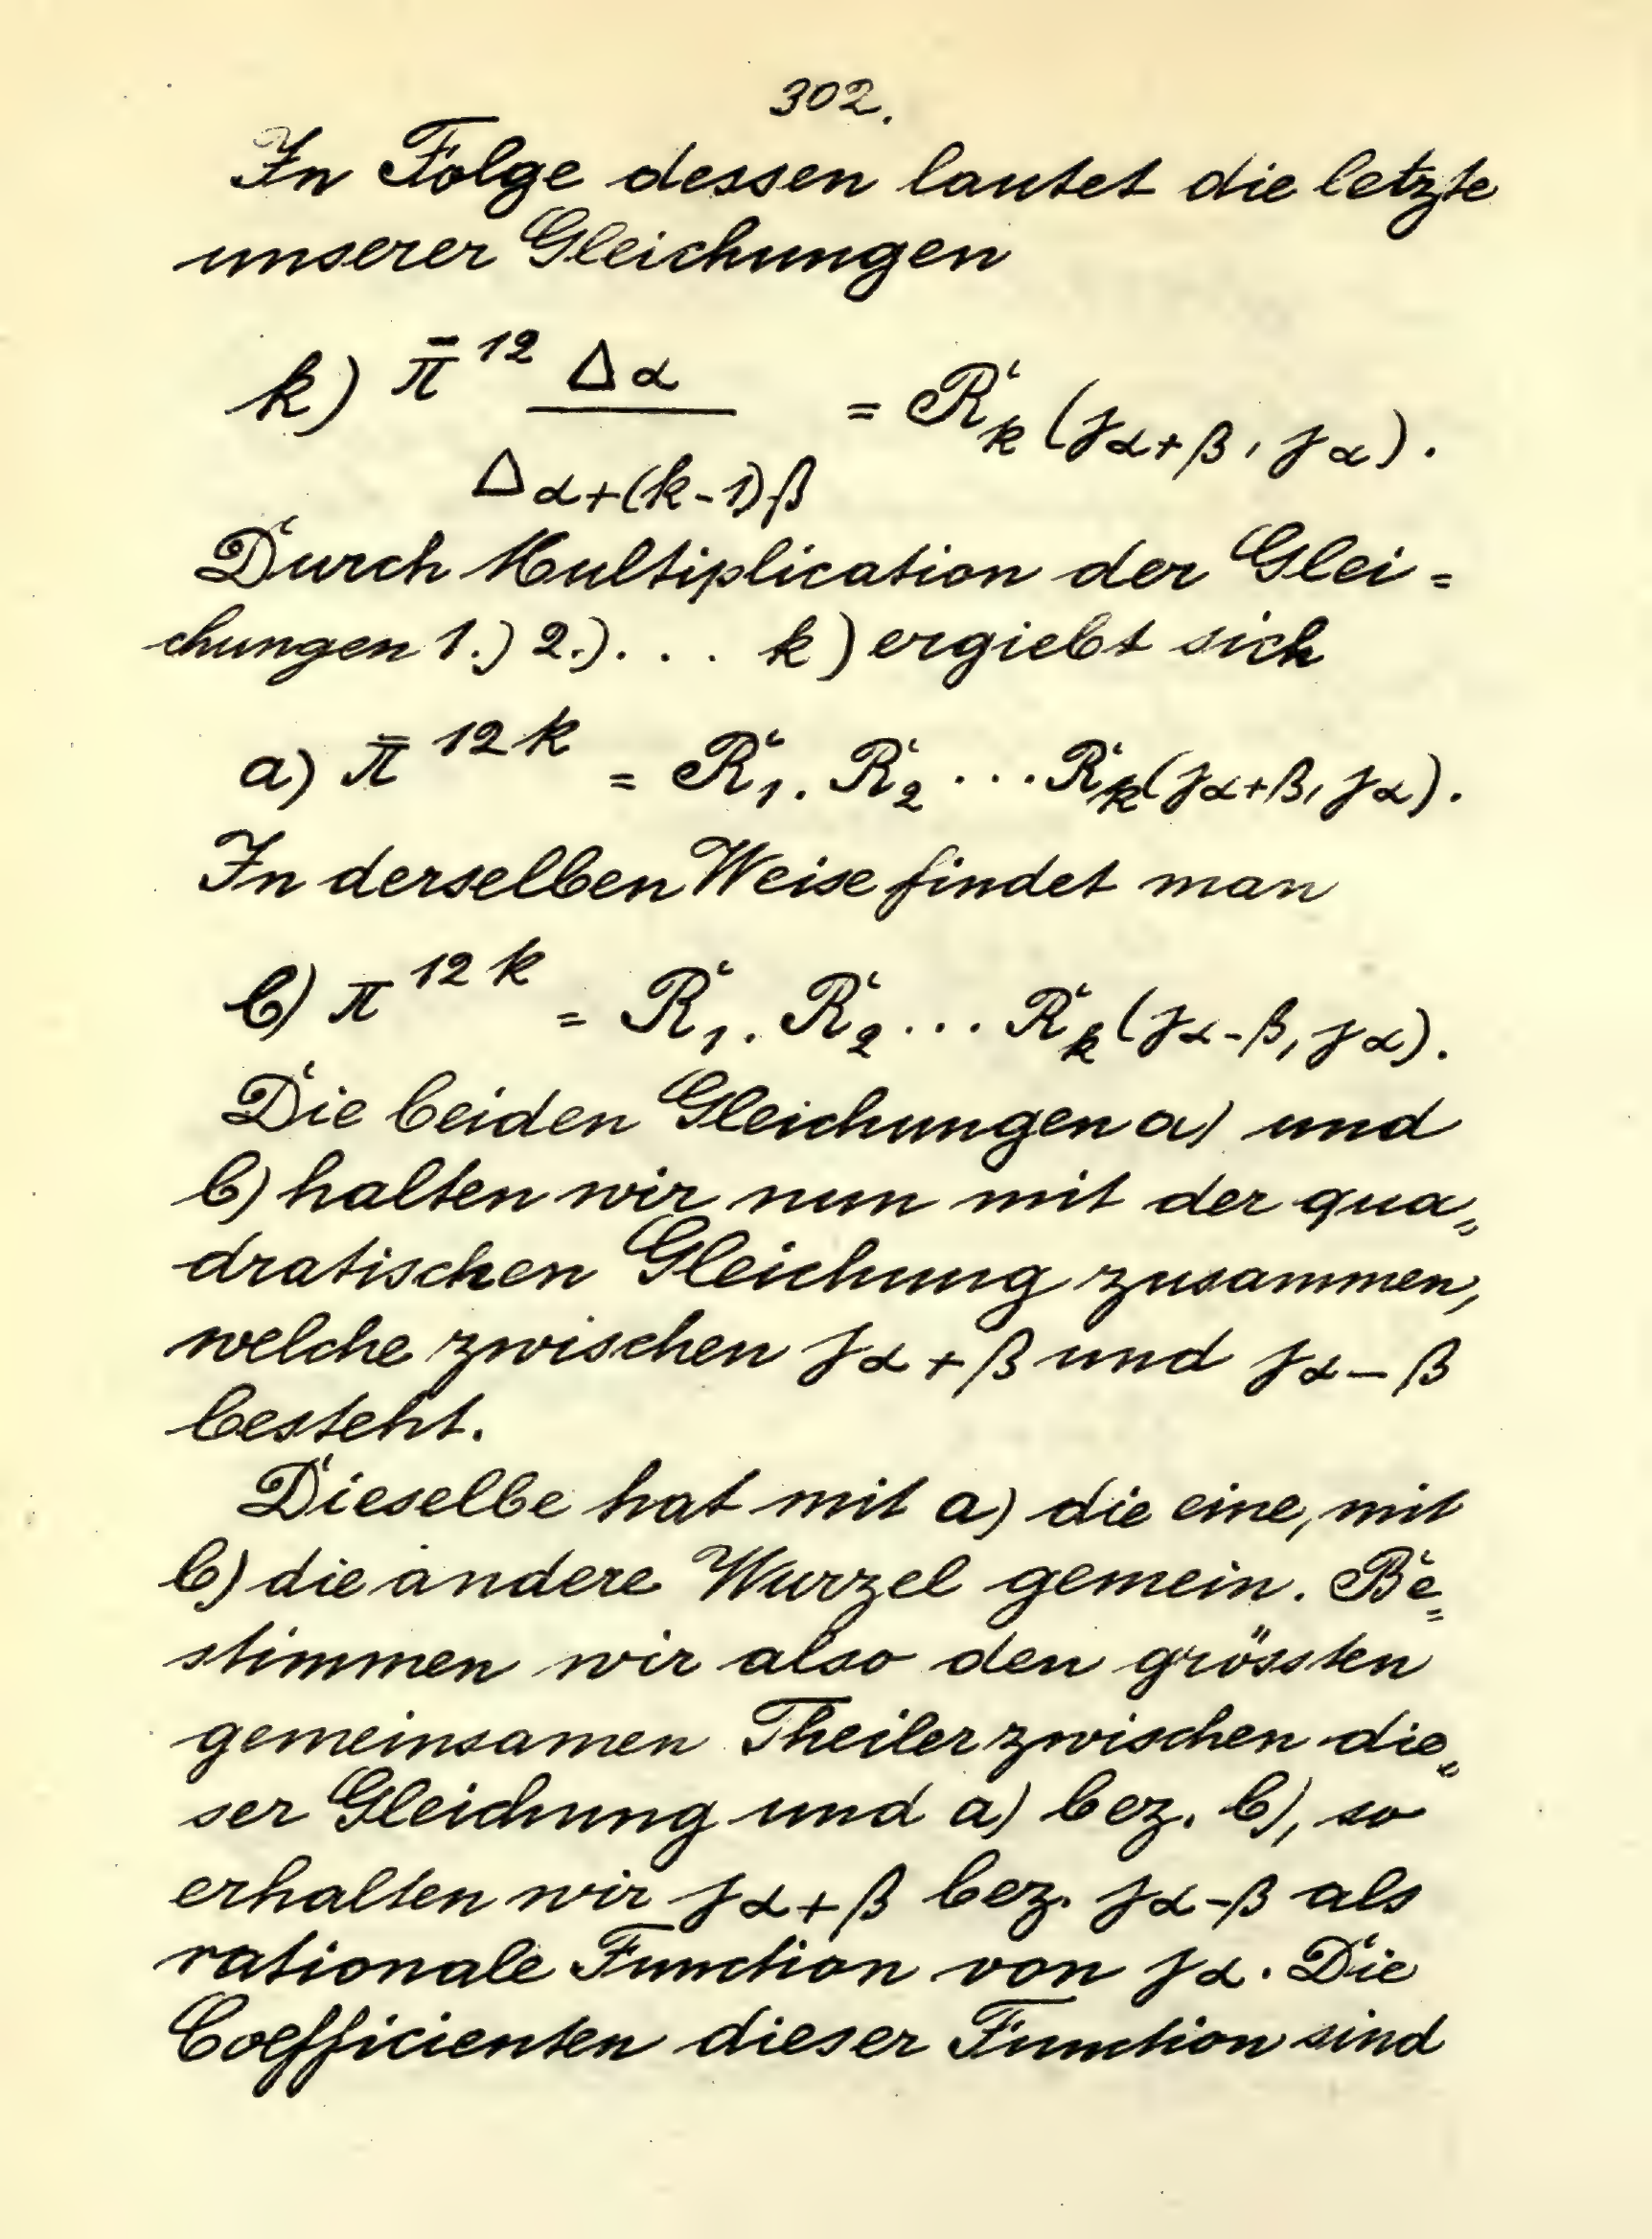 302.
In Folge dessen lautet die letzte
unserer Gleichungen
k) π̄^12 Δ_α / Δ_α+(k-1)β = R_k (j_α+β, j_α).
Durch Multiplication der Glei=
chungen 1.) 2.). . . k) ergiebt sich
a) π̄^12k = R_1. R_2 . . . R_k (j_α+β, j_α).
In derselben Weise findet man
b) π^12k = R_1. R_2 . . . R_k (j_α-β, j_α).
Die beiden Gleichungen a) und
b) halten wir nun mit der qua=
dratischen Gleichung zusammen,
welche zwischen j_α+β und j_α-β
besteht.
Dieselbe hat mit a) die eine, mit
b) die andere Wurzel gemein. Be=
stimmen wir also den grössten
gemeinsamen Theiler zwischen die=
ser Gleichung und a) bez. b), so
erhalten wir j_α+β bez. j_α-β als
rationale Function von j_α. Die
Coefficienten dieser Function sind